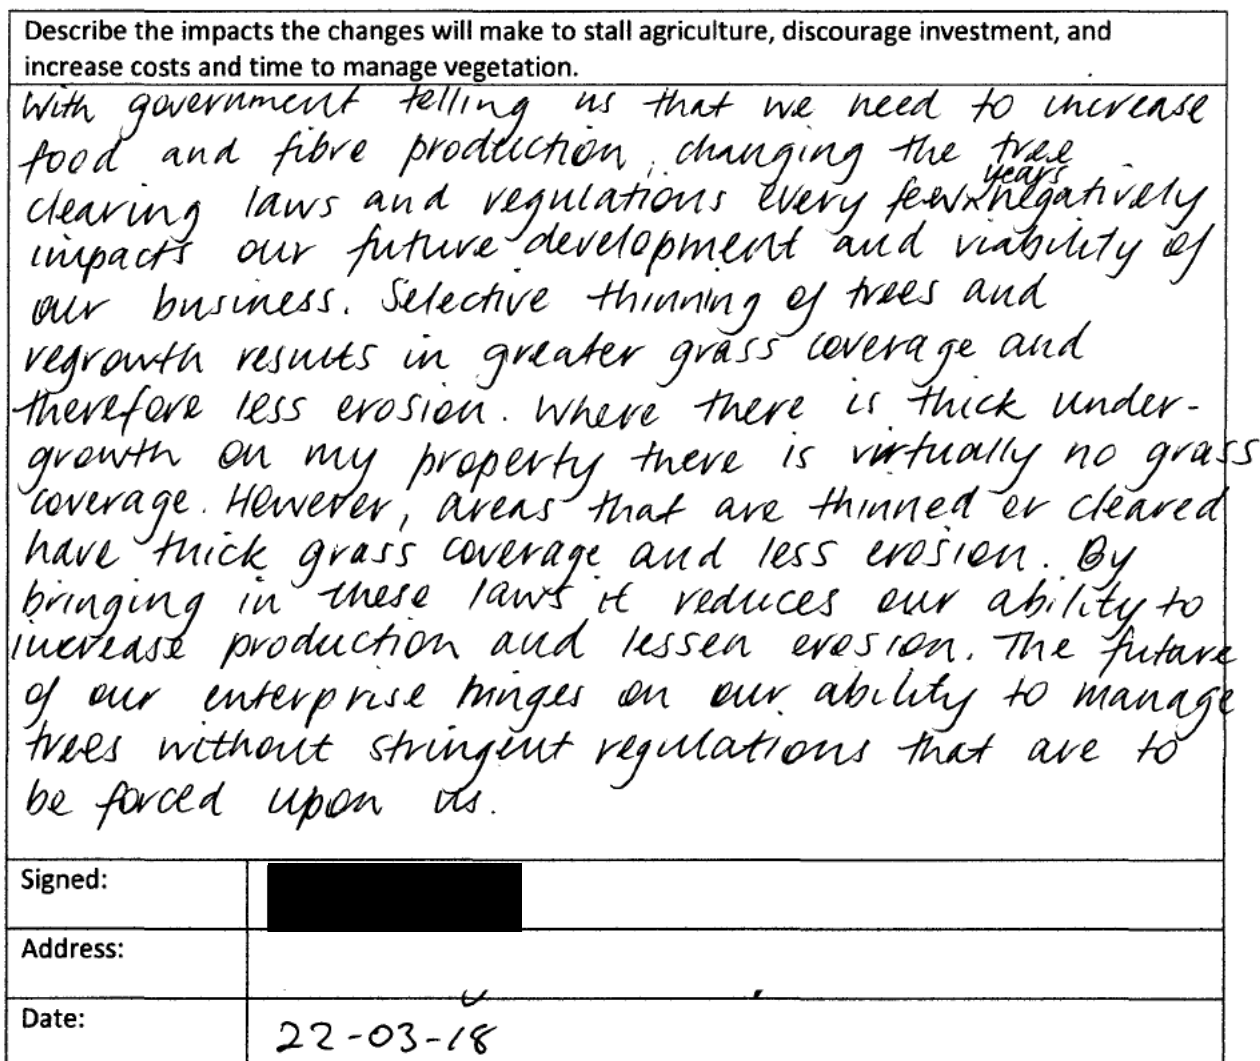 Describe the impacts the changes will make to stall agriculture, discourage investment, and
increase costs and time to manage vegetation.
With government telling us that we need to increase
food and fibre production, changing the tree
clearing laws and regulations every few years negatively
impacts our future development and viability of
our business. Selective thinning of trees and
regrowth results in greater grass coverage and
therefore less erosion. Where there is thick under-
growth on my property there is virtually no grass
coverage. However, areas that are thinned or cleared
have thick grass coverage and less erosion. By
bringing in these laws it reduces our ability to
increase production and lessen erosion. The future
of our enterprise hinges on our ability to manage
trees without stringent regulations that are to
be forced upon us.
Signed:
Address:
Date: 22-03-18